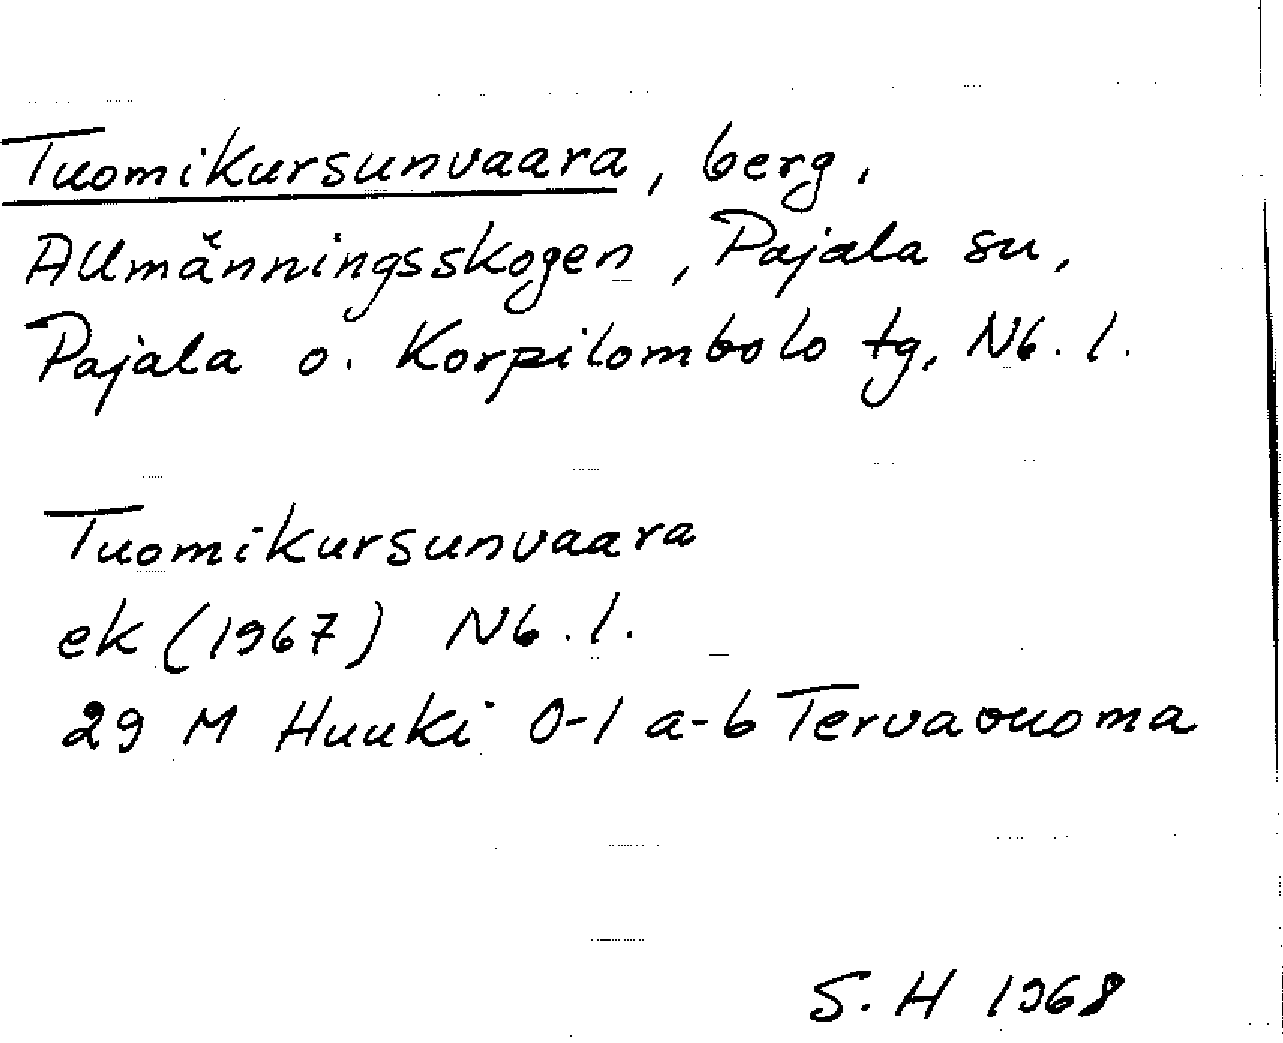 Tuomikursunvaara, berg,
Allmänningsskogen, Pajala su,
Pajala o. Korpilombolo tg, Nb. l.
Tuomikursunvaara
ek (1967) Nb. l.
29 M Huuki 0-1 a-b Tervavuoma
S. H 1968